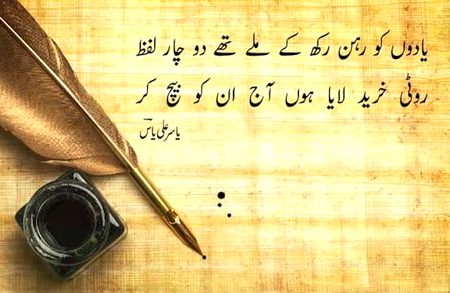 یادوں کو رہن رکھ کے ملے تھے دو چار لفظ
روٹی خرید لایا ہوں آج ان کو بیچ کر
یاسر علی یاسؔ